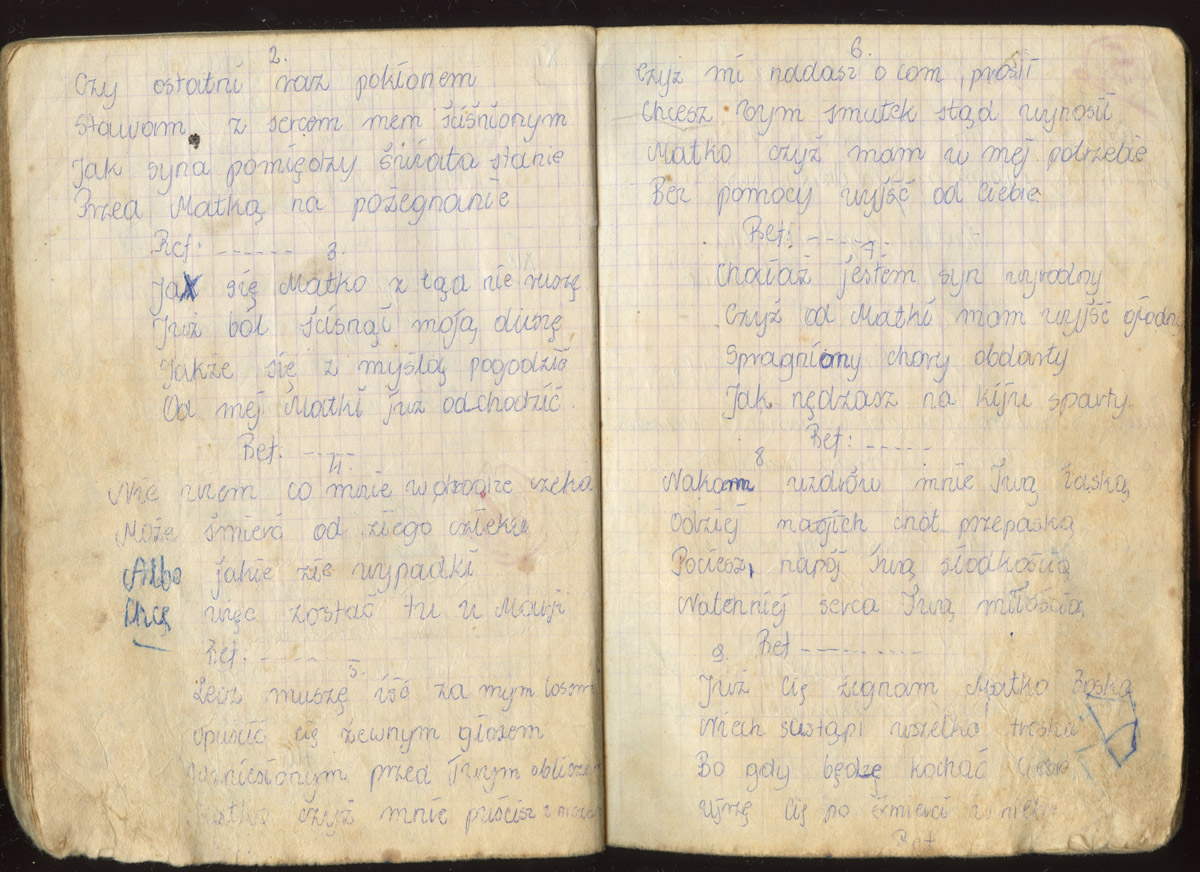 2.
Czy ostatni raz pokłonem
Stawam z sercem mem ściśnionym
Jak syna pomiędzy świata stanie
Przed Matką na pożegnanie
Ref: ------
3.
Jak się Matko z tąd nie ruszę
Już ból ścisnął moją duszę
Jakże się z myślą pogodzić
Od mej Matki już odchodzić
Ref: -----
4.
Nie wiem co mnie w drodze czeka
Może śmierć od złego człeka
Albo jakie złe wypadki
Chcę więc zostać tu u Matki
Ref: ------
5.
Lecz muszę iść za mym losem
opuścić cię żewnym głosem
wzniesionym przed Twym
Matko czyż mnie puścisz z
6.
Czyż mi nadasz o com prosił
Chcesz bym smutek stąd wynosił
Matko czyż mam w mej potrzebie
Bez pomocy wyjść od Ciebie
Ref: -----
7.
Chociaż jestem syn wyrodny
Czyż od Matki mam wyjść
Spragniony chory obdarty
Jak nędzasz na kiju sparty.
Ref: -----
8.
uzdrów mnie Twą łaską
Odziej cnót przepaską
Pociesz, napój Twą słodkością
serca Twą miłością
Ref ----------
9.
Już cię żegnam Matko Boska
Niech sustąpi wszelka troska
Bo gdy będzę kochać
Ujrzę cię po śmierci w
Ref